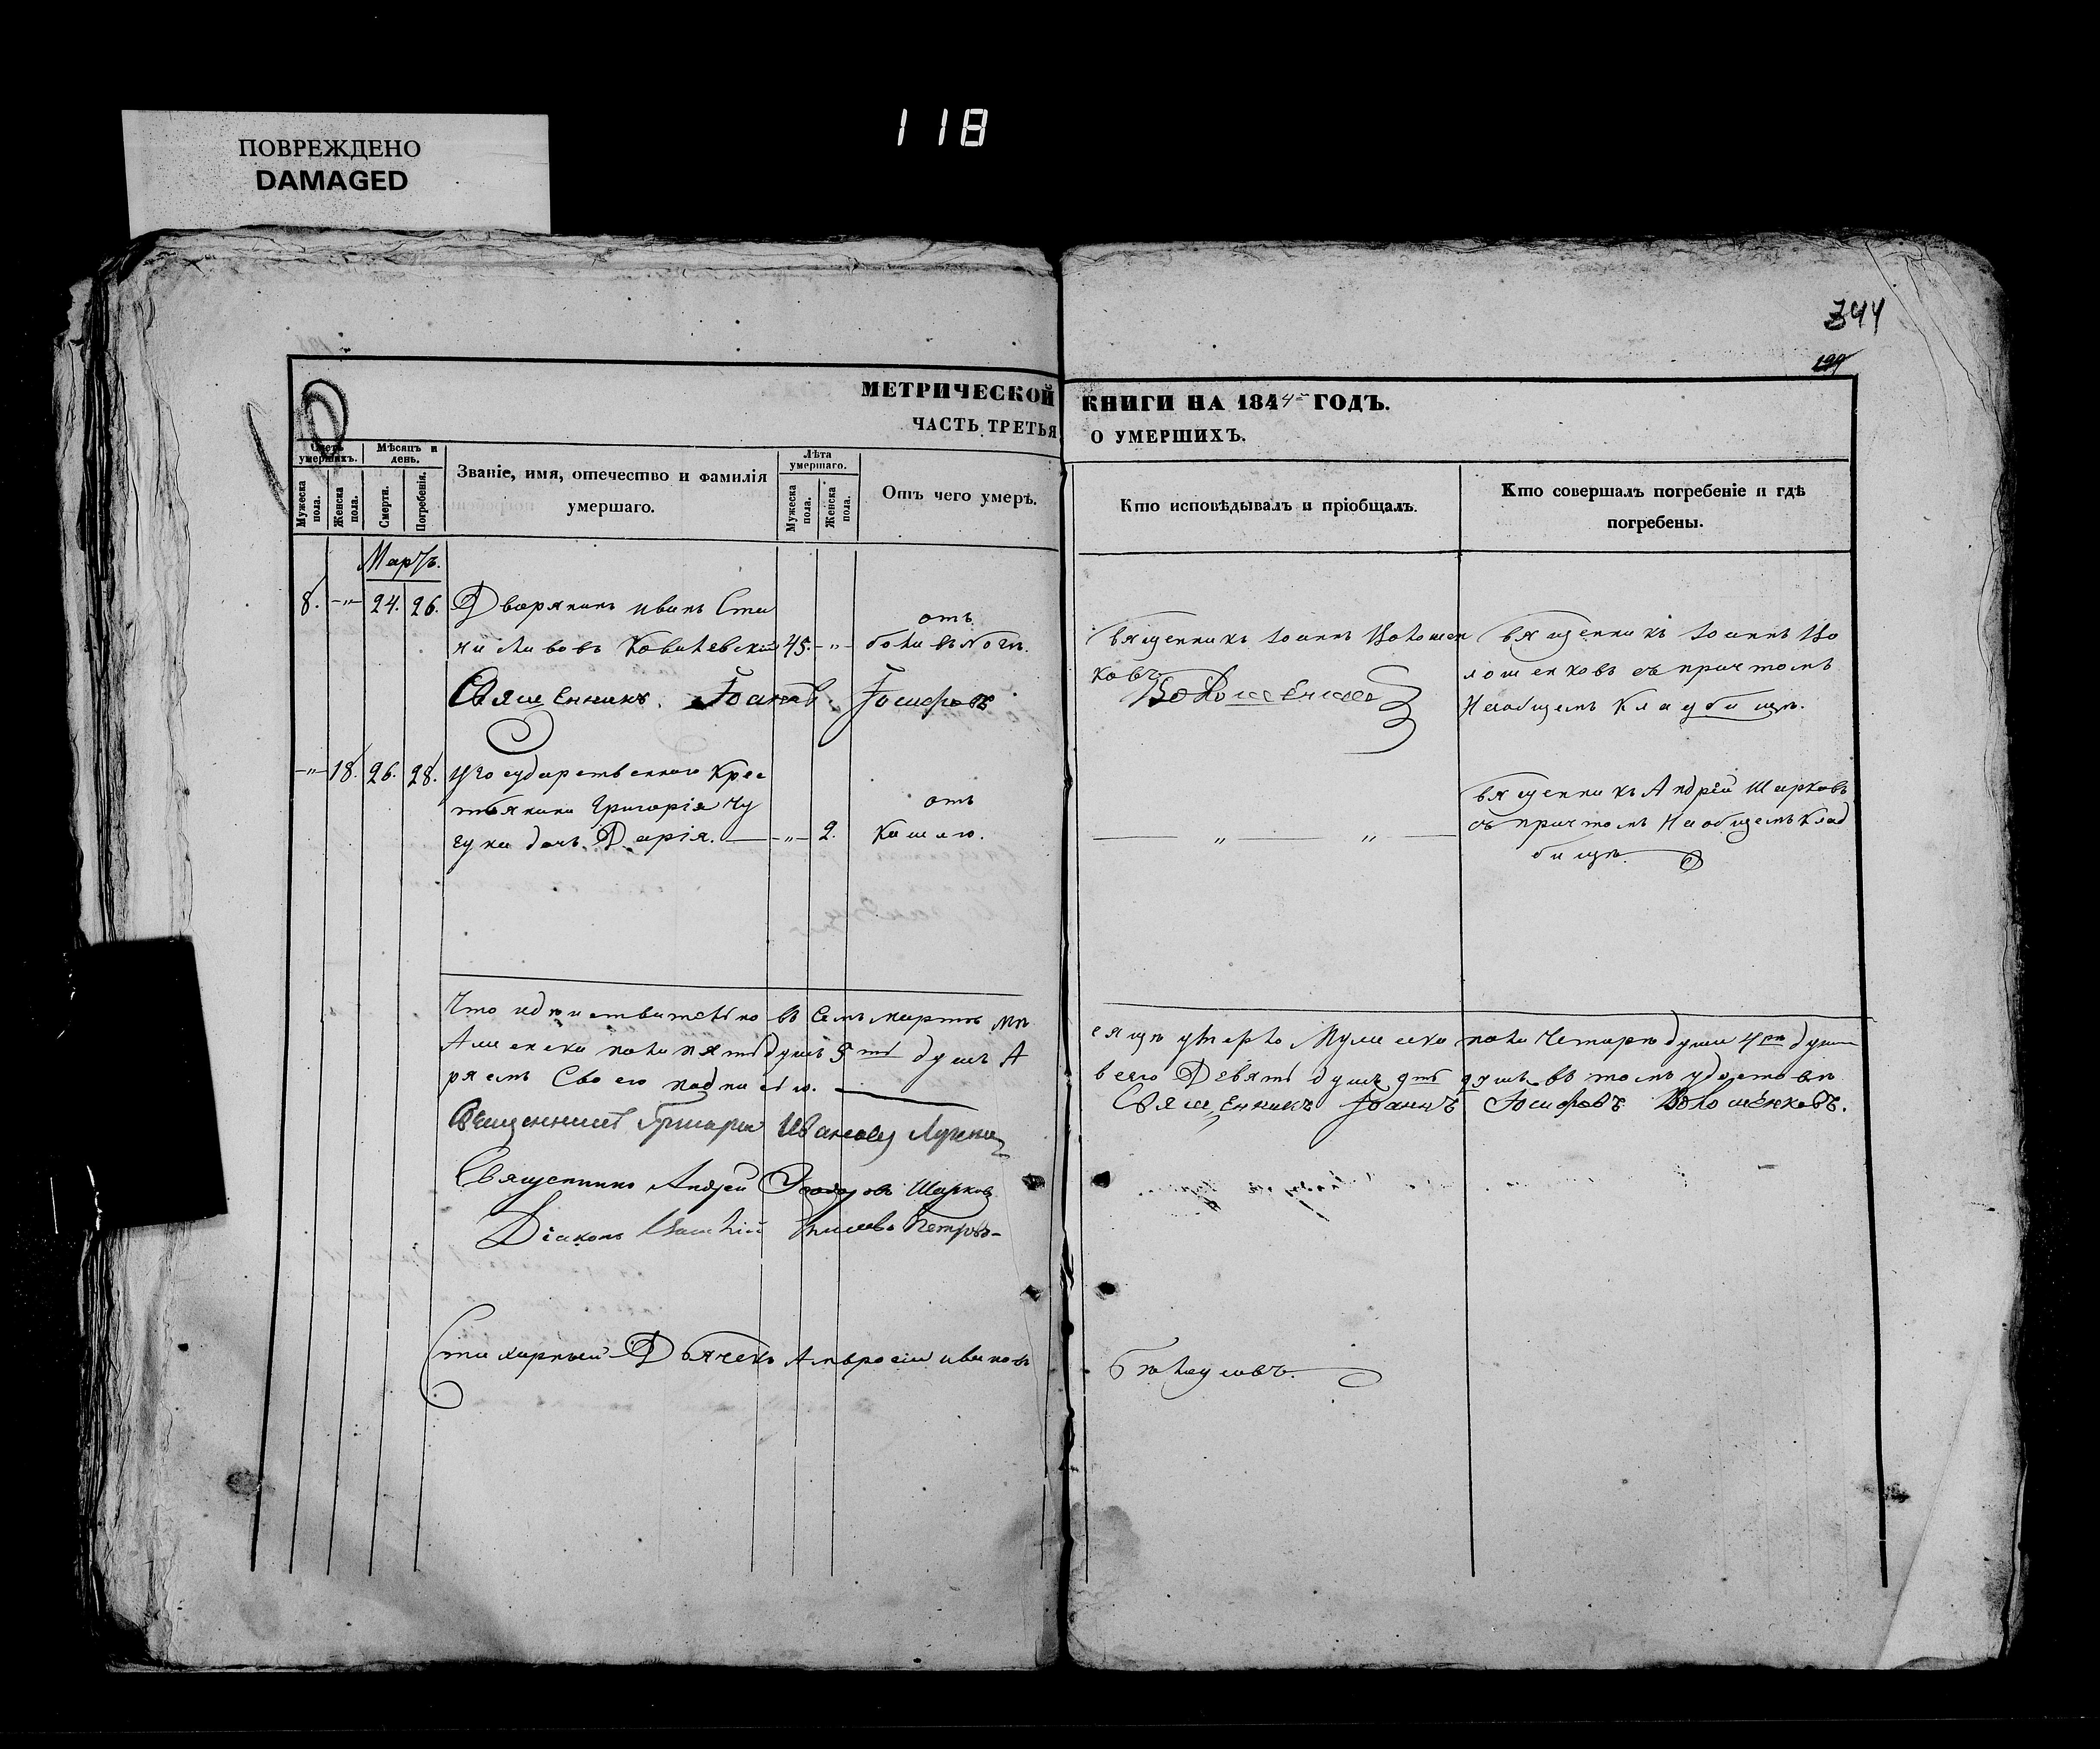 ПОВРЕЖДЕНО
DAMAGED
118
344
199
МЕТРИЧЕСКОЙ КНИГИ НА 1844й ГОДЪ.
ЧАСТЬ ТРЕТЬЯ О УМЕРШИХЪ.
Счетъ умершихъ.
Мужеска пола.
Женска пола.
Мѣсяцъ и день.
Смерти.
Погребенія.
Званіе, имя, отечество и фамилія
умершаго.
Лѣта умершаго.
Мужеска пола.
Женска пола.
Отъ чего умеръ.
Кто исповѣдывалъ и пріобщалъ.
Кто совершалъ погребеніе и гдѣ
погребены.
Мартъ.
8. -"- 24. 26. Дворянинъ иванъ Ста
ниславовъ 45. -"-
отъ
боли въ Ногѣ.
Священникъ Іоаннъ Волошен
ковъ
Священникъ Іоаннъ Во
лошенковъ съ причтомъ
На общемъ Кладбищѣ.
Священникъ Іоаннъ Іосифовъ Волошенковъ
-"- 18. 26. 28. Государственнаго Крес
тьянина Григорія Чу
чуки дочь Дарія. -"- 2.
отъ
Кашлю.
" "
Священникъ Андрей Шарковъ
съ причтомъ На общемъ Клад
бищѣ.
Что дѣйствительно въ Семъ мартѣ мѣ
сяцѣ умерло Мужеска пола Четыре души 4ре души
А женска пола пять душъ 5ть душъ А
всего Девять душъ 9ть душъ въ томъ удостовѣ
ряемъ Своею подписью.
Священникъ Іоаннъ Іосифовъ Волошенковъ.
Священникъ Григорій Ивановъ
Священникъ Андрей Ѳеодоровъ Шарковъ
Діаконъ Петровъ
Стихарный Дьячекъ Амвросій ивановъ